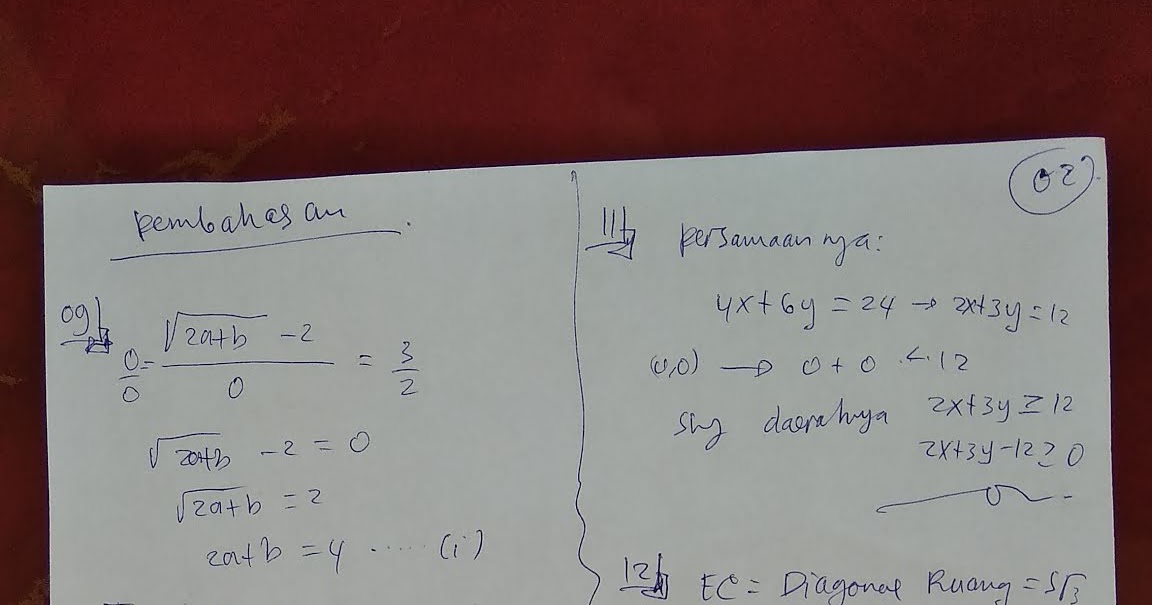 02
Pembahasan.
09
0/0 = (√(2a+b) - 2)/0 = 3/2
√(2a+b) - 2 = 0
√(2a+b) = 2
2a+b = 4 ..... (i)
11
Persamaannya:
4x+6y = 24 → 2x+3y = 12
(0,0) → 0 + 0 < 12
shg daerahnya 2x+3y ≥ 12
2x+3y-12 ≥ 0
12
EC = Diagonal Ruang = 5√3